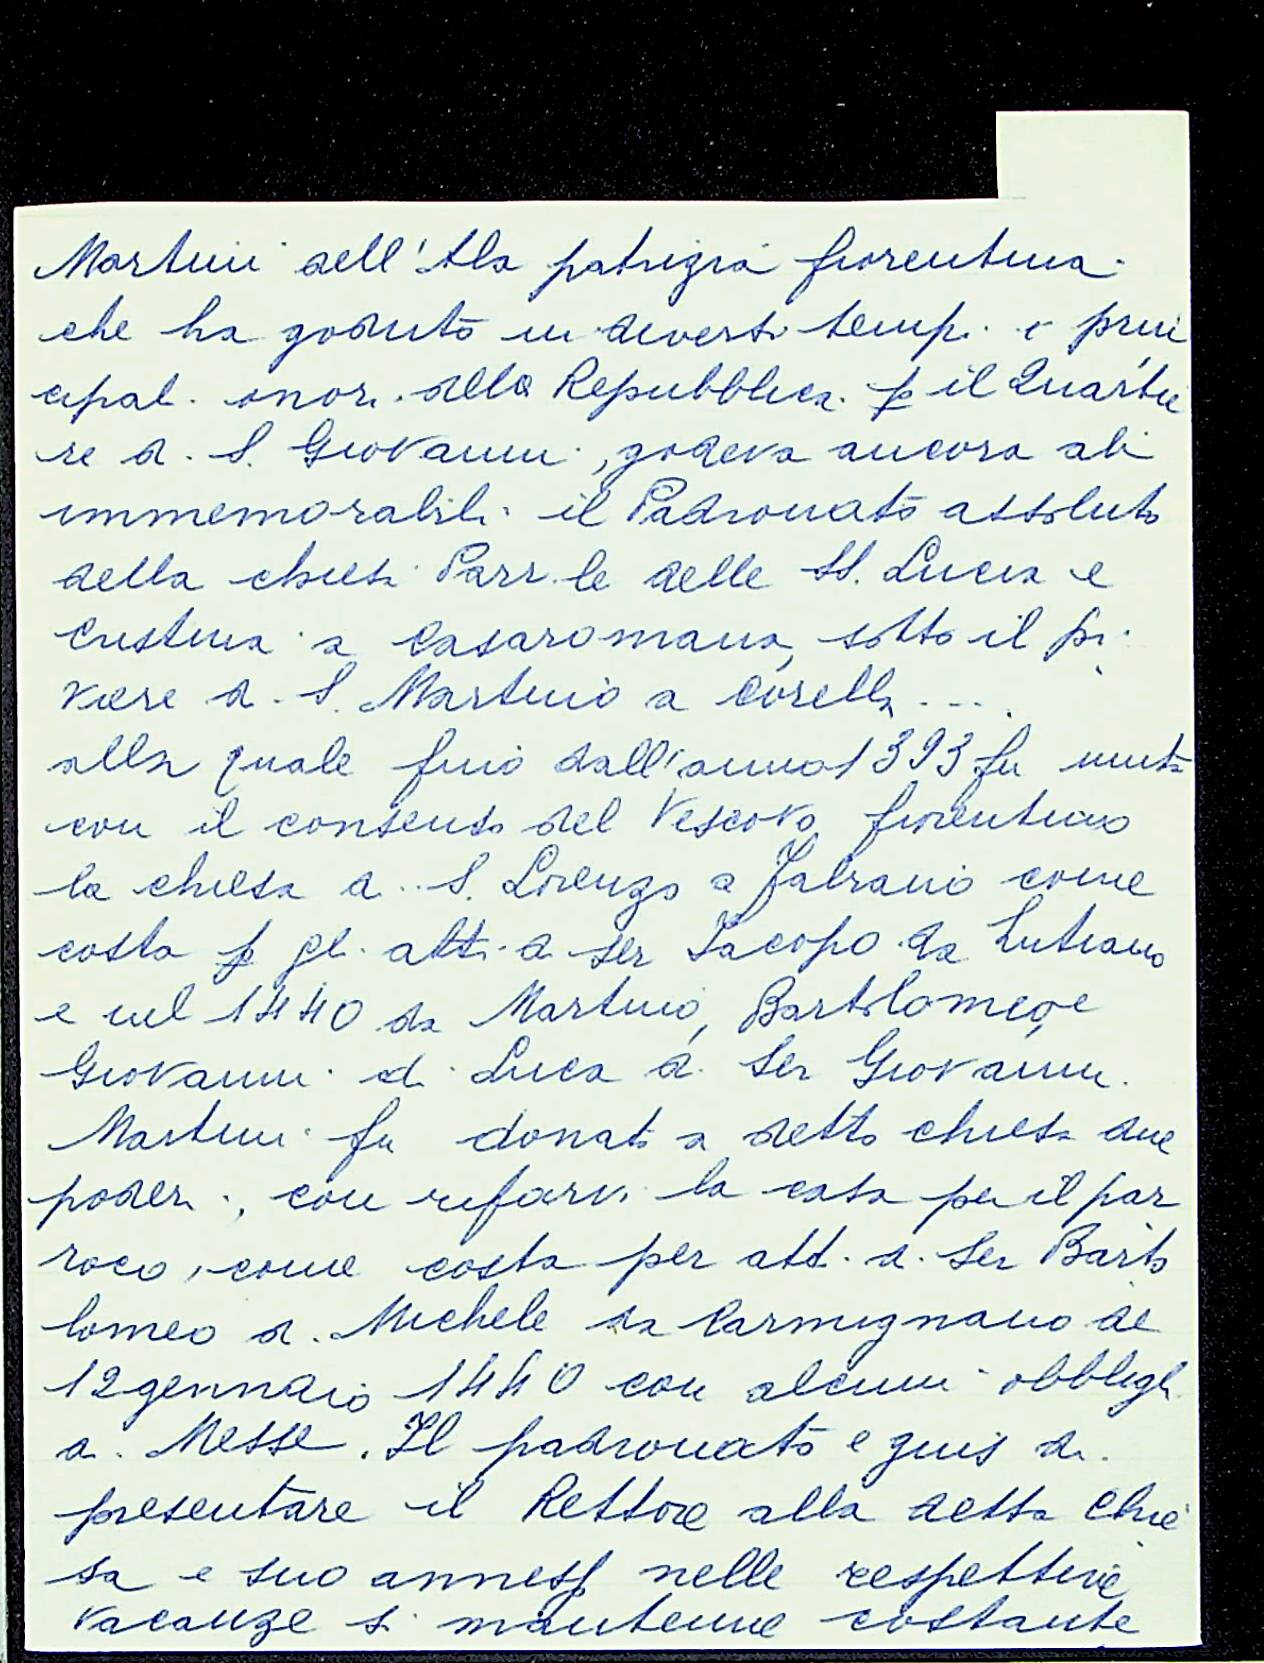 Martini dell'Ala patrizia fiorentina
che ha goduto in diversi tempi i prin
cipali onori della Repubblica p il Quartie
re di S. Giovanni, godeva ancora ab
immemorabili il Padronato assoluto
della chiesa Parr.le delle SS. Lucia e
Cristina a Casaromana, sotto il pi
viere di S. Martino a Corella ....
alla quale fino dall'anno 1393 fu unita
con il consenso del Vescovo fiorentino
la chiesa di S. Lorenzo a Fabiano come
costa p gli atti di ser Iacopo da Lutiano
e nel 1440 da Martino, Bartolomeo, e
Giovanni di Luca di Ser Giovanni
Martini fu donato a detta chiesa due
poderi, con rifarvi la casa per il par
roco, come costa per atti di Ser Barto
lomeo di Michele da Carmignano de
12 gennaio 1440 con alcuni obblighi
di Messe. Il padronato e gius di
presentare il Rettore alla detta Chie
sa e suo annessi nelle respettive
vacanze si mantenne costante